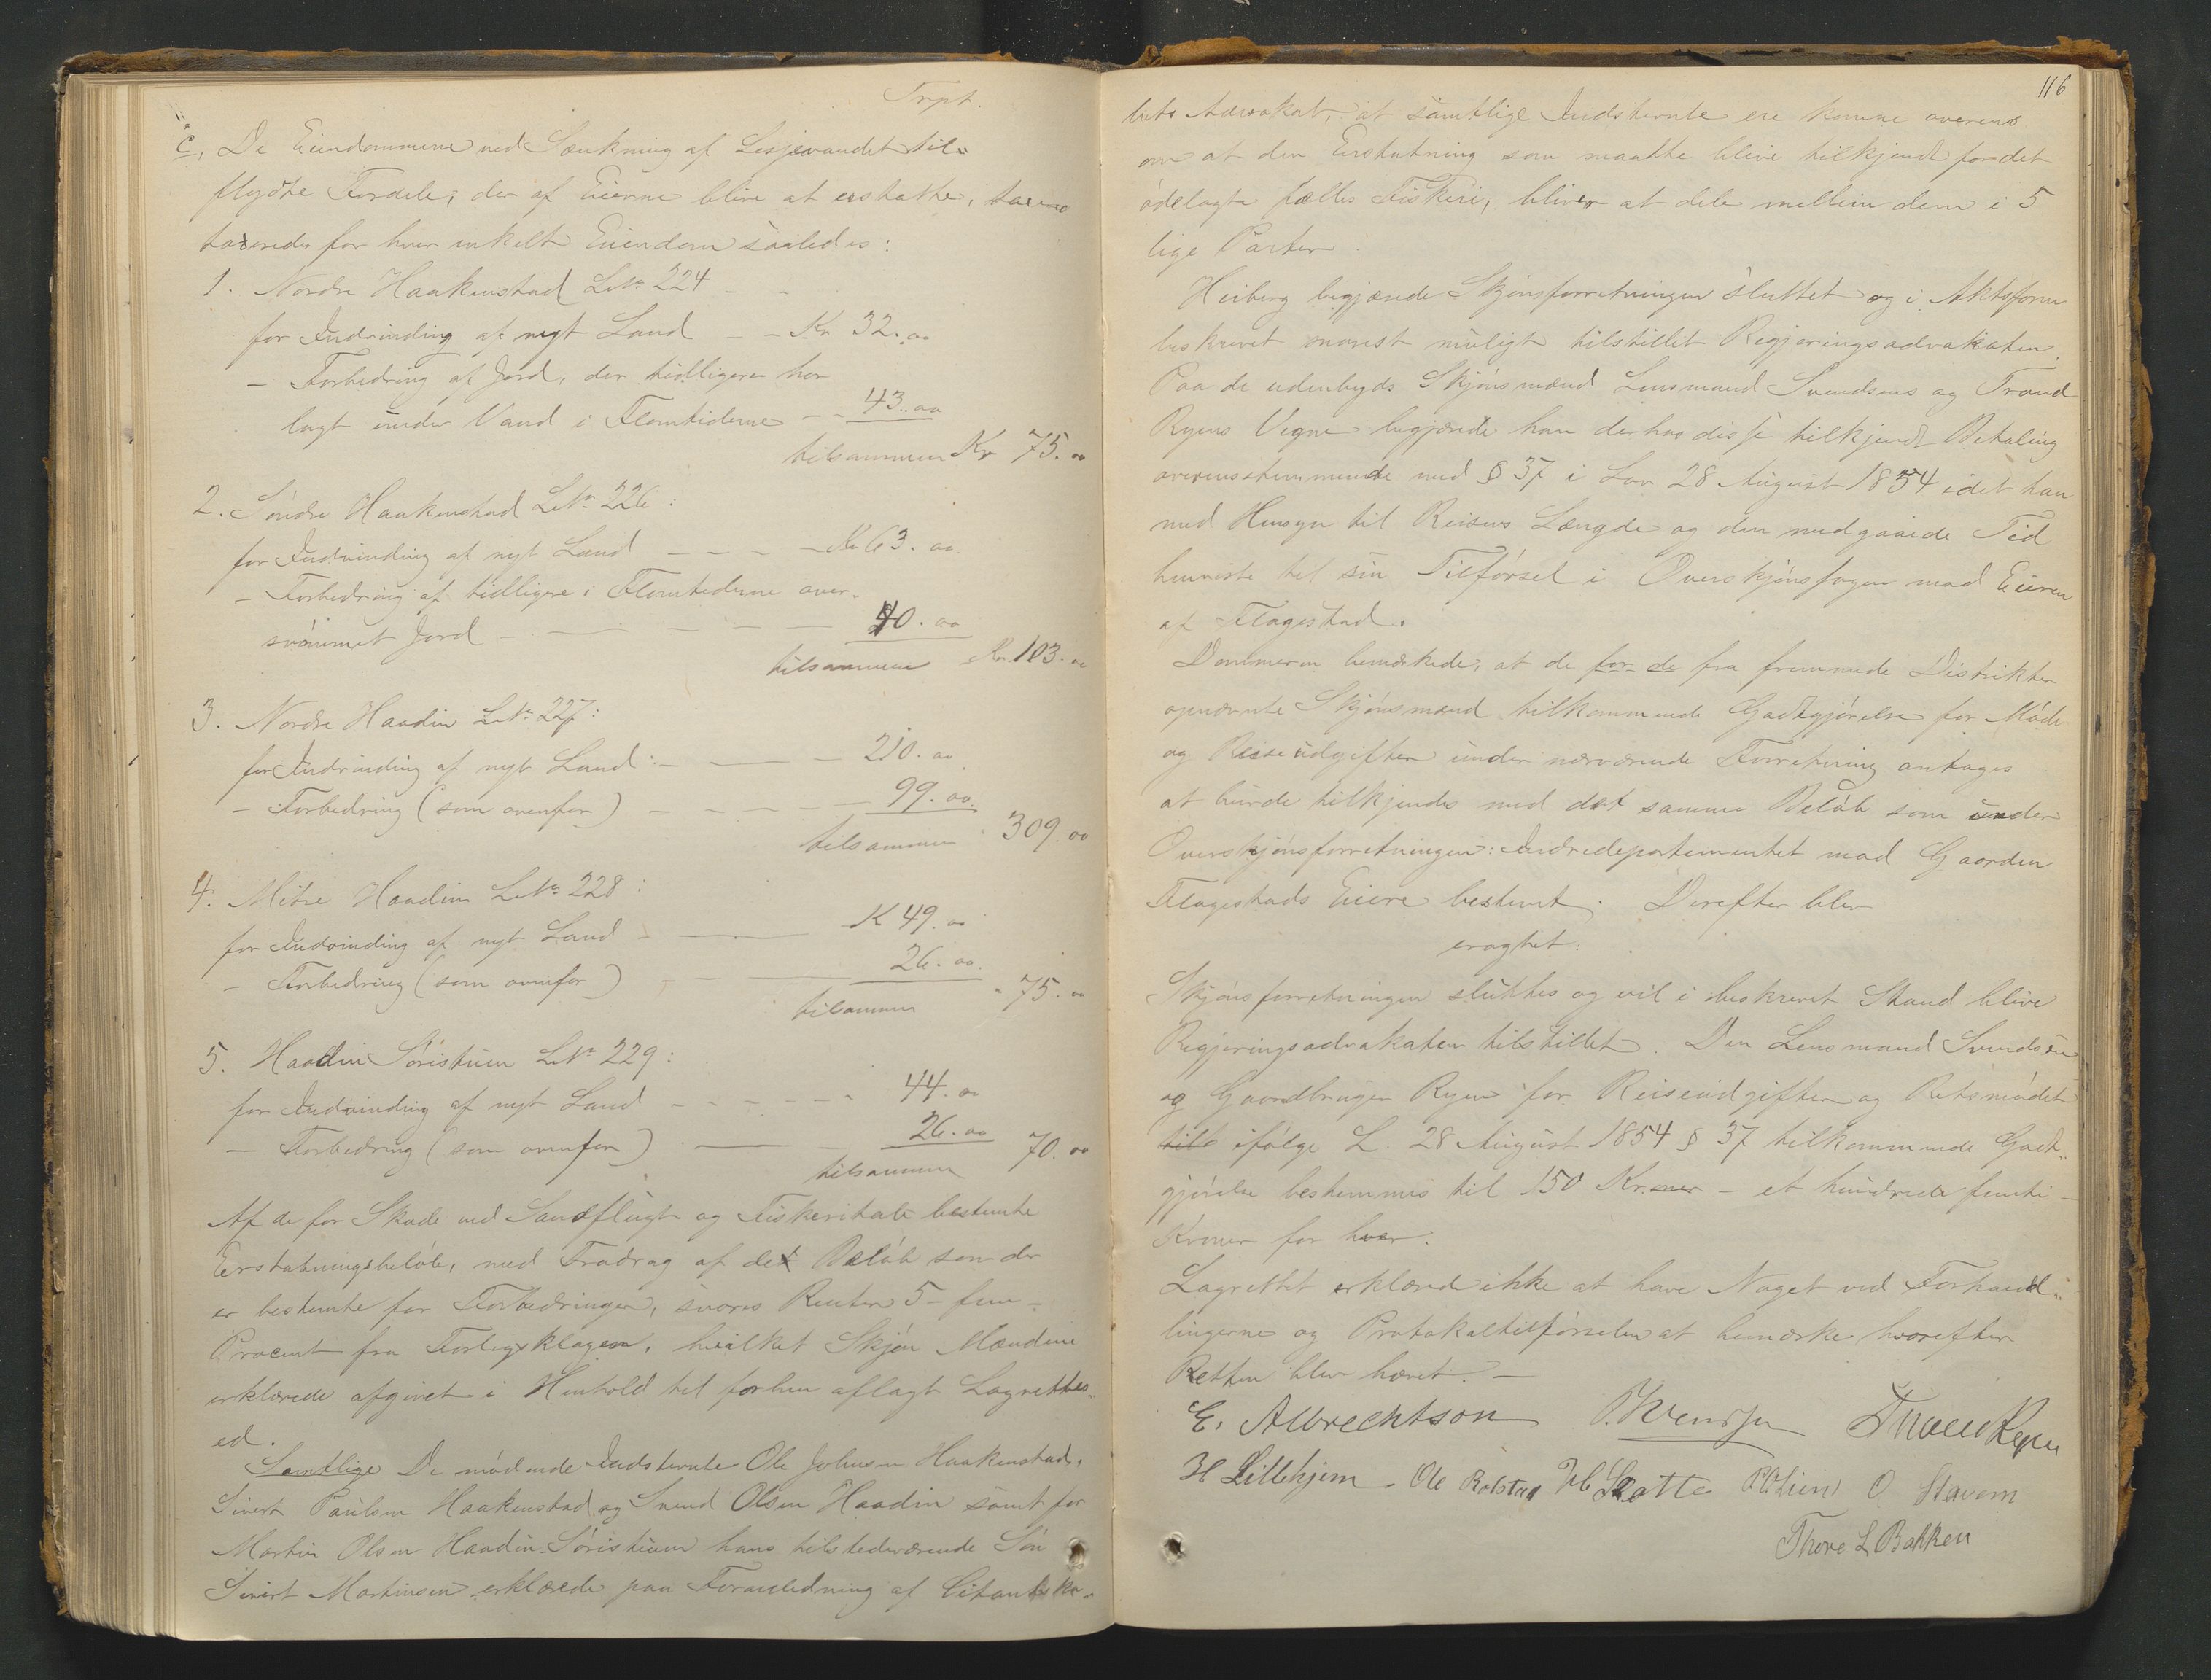 Trpt.
c, De Eiendommene ved Sænkning af Lesjevandet til-
flydte Fordele, der af Eierne blive at erstatte,
taxeredes for hver enkelt Eiendom saaledes:
1. Nordre Haakenstad LNr. 224 - -
for Indvinding af nyt Land - - Kr 32.00
- Forbedring af Jord, der tidligere har
lagt under Vand i Flomtiderne - - 43.00
tilsammen Kr 75.00
2. Söndre Haakenstad LNr. 226:
for Indvinding af nyt Land - - - - Kr 63.00
- Forbedring af tidligere i Flomtiderne over-
svömmet Jord - - - - - 40.00
tilsammen Kr. 103.00
3. Nordre Haadin LNr. 227:
for Indvinding af nyt Land: - - - 210.00
- Forbedring (som ovenfor) - - - - 99.00
tilsammen 309.00
4. Mitre Haadin LNr. 228:
for Indvinding af nyt Land - - K 49.00
- Forbedring (som ovenfor) - - 26.00
tilsammen - 75.00
5. Haadin Söristuen LNr. 229:
for Indvinding af nyt Land - - - - - - 44.00
- Forbedring (som ovenfor) - - 26.00
tilsammen 70.00
Af de for Skade ved Sandflugt og Fiskeritab bestemte
Erstatningsbelöb, med Fradrag af det Belöb som der
er bestemte for Forbedringer, svares Renter 5 - fem -
Procent fra Forligsklagen, hvilket Skjön Mændene
erklærede afgivet i Henhold til forhen aflagt Lagrettes-
ed.
Samtlige De mödende Indstevnte Ole Johnsen Haakenstad,
Sivert Paulsen Haakenstad og Svend Olsen Haadin samt for
Martin Olsen Haadin-Söristuen hans tilstedeværende Sön
Sivert Martinsen erklærede paa Foranledning af Citantska-
116
bets Advokat, at samtlige Indstevnte ere komne overens
om at den Erstatning som maatte blive tilkjendt for det
ödelagte fælles Fiskeri, bliver at dele mellem dem i 5
lige Parter.
Heiberg begjærede Skjönsforretningen sluttet og i Aktsform
beskrevet snarest muligt tilstillet Regjeringsadvokaten.
Paa de udenbygds Skjönsmænd Lensmand Svendsens og Trond
Ryens Vegne begjærede han derhos disse tilkjendt Betaling
overensstemmende med § 37 i Lov 28 August 1854 idet han
med Hensyn til Reisens Længde og den medgaaede Tid
henviste til sin Tilförsel i Overskjönssagen mod Eieren
af Flagestad.
Dommeren bemærkede, at de for de fra fremmede Distrikter
opnævnte Skjönsmænd tilkommende Godtgjörelse for Möde
og Reiseudgifter under nærværende Forretning antages
at burde tilkjendes med det samme Belöb som under
Overskjönsforretningen: Indredepartementet mod Gaarden
Flagestads Eiere bestemt. Derefter blev
eragtet:
Skjönsforretningen sluttes og vil i beskrevet Stand blive
Regjeringsadvokaten tilstillet. Den Lensmand Svendsen
og Gaardbruger Ryen for Reiseudgifter og Retsmödet
ifölge L. 28 August 1854 § 37 tilkommende Godt-
gjörelse bestemmes til 150 Kr. - et hundrede femti -
Kroner for hver.
Lagrettet erklæred ikke at have Noget ved Forhand-
lingerne og Protokoltilförselen at bemærke hvorefter
Retten blev hævet. -
E. Albrechtson Trond Ryen
H Lillehjem. Ole Rolstad Slotte O Stavem
Thore L Bakken